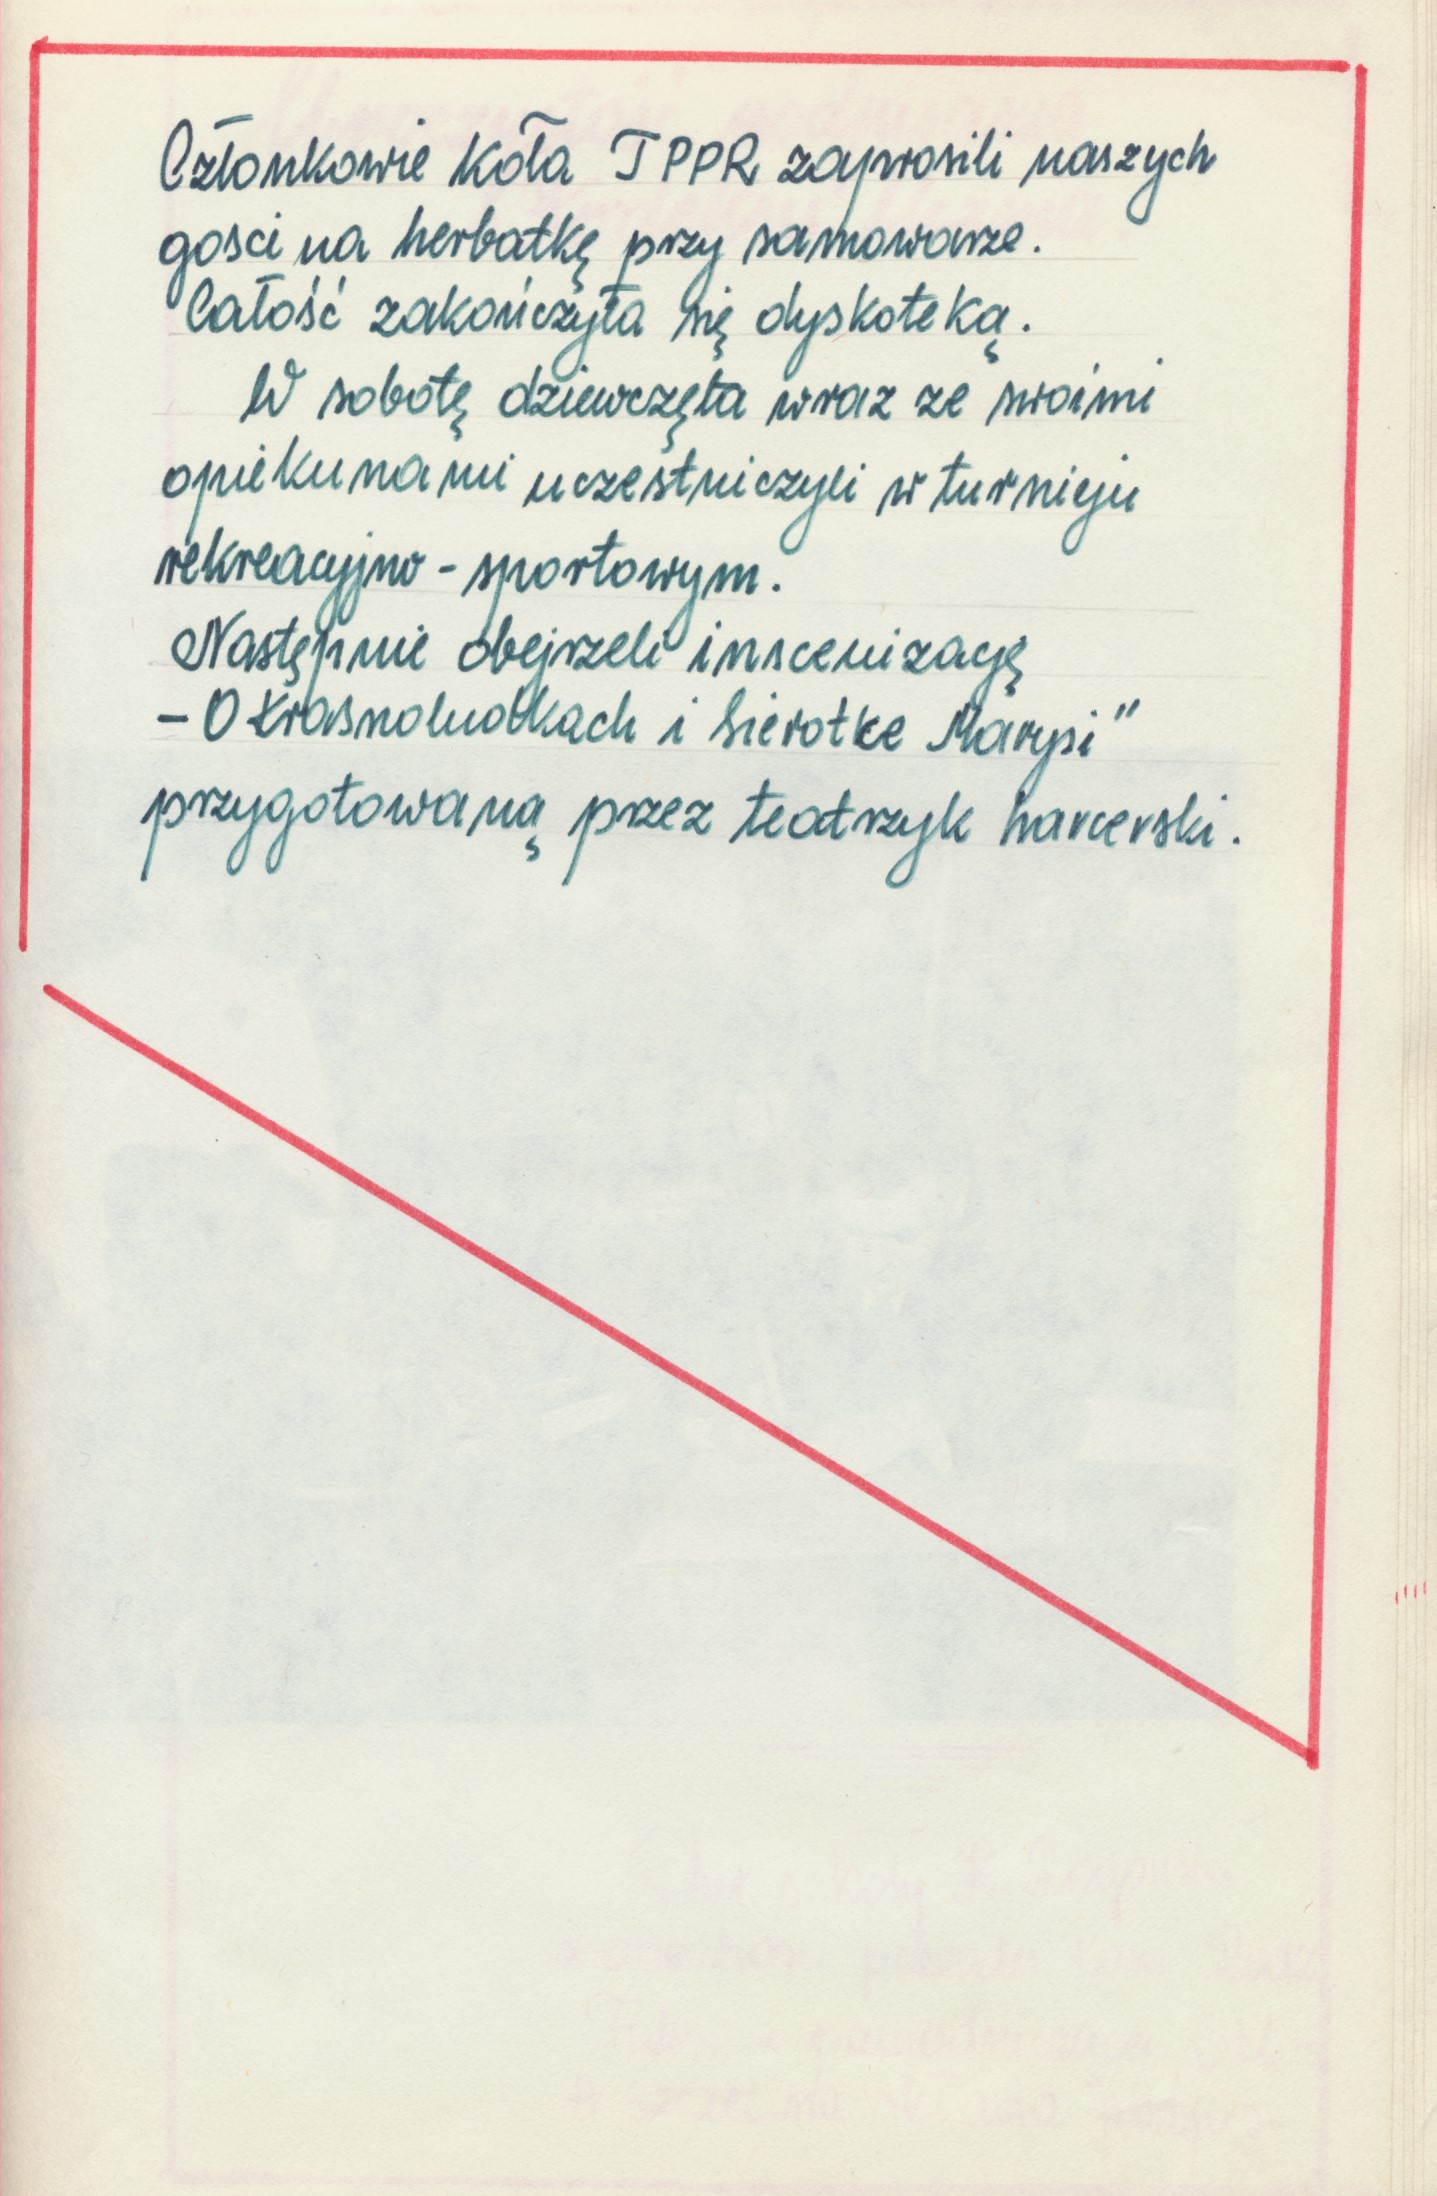 Członkowie koła TPPR zaprosili naszych
gosci na herbatkę przy samowarze.
Całość zakończyła się dyskoteką.
W sobotę dziewczęta wraz ze swoimi
opiekunami uczestniczyli w turnieju
rekreacyjno - sportowym.
Następnie obejrzeli inscenizację
- O Krasnoludkach i Sierotke Marysi"
przygotowaną przez teatrzyk harcerski.